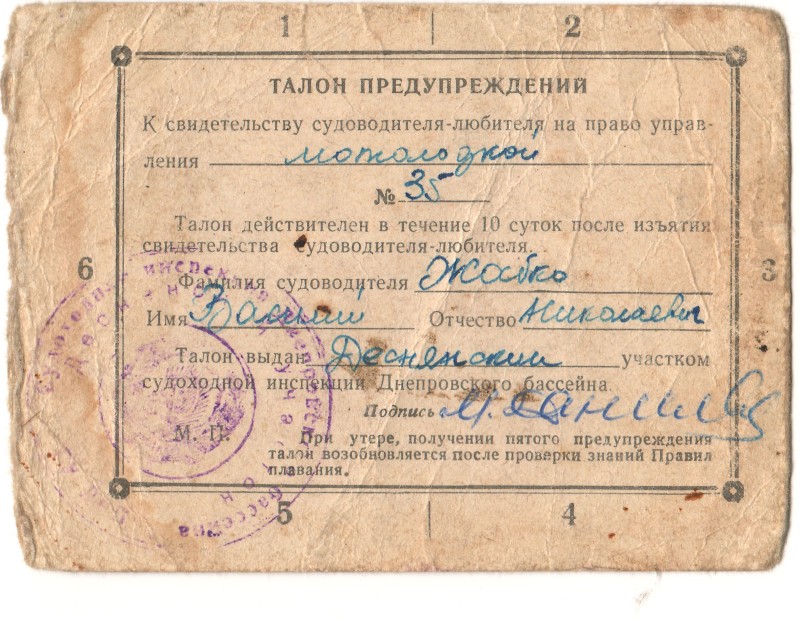 1 2
ТАЛОН ПРЕДУПРЕЖДЕНИЙ
К свидетельству судоводителя-любителя на право управ-
ления мотолодкой
№ 35
Талон действителен в течение 10 суток после изъятия
свидетельства судоводителя-любителя.
6 3
Фамилия судоводителя Жабко
Имя Василий Отчество Николаевич
Талон выдан Деснянский участком
судоходной инспекции Днепровского бассейна.
Подпись
М. П. При утере, получении пятого предупреждения
талон возобновляется после проверки знаний Правил
плавания.
5 4
Судоходная инспекция бассейна
Деснянский участок